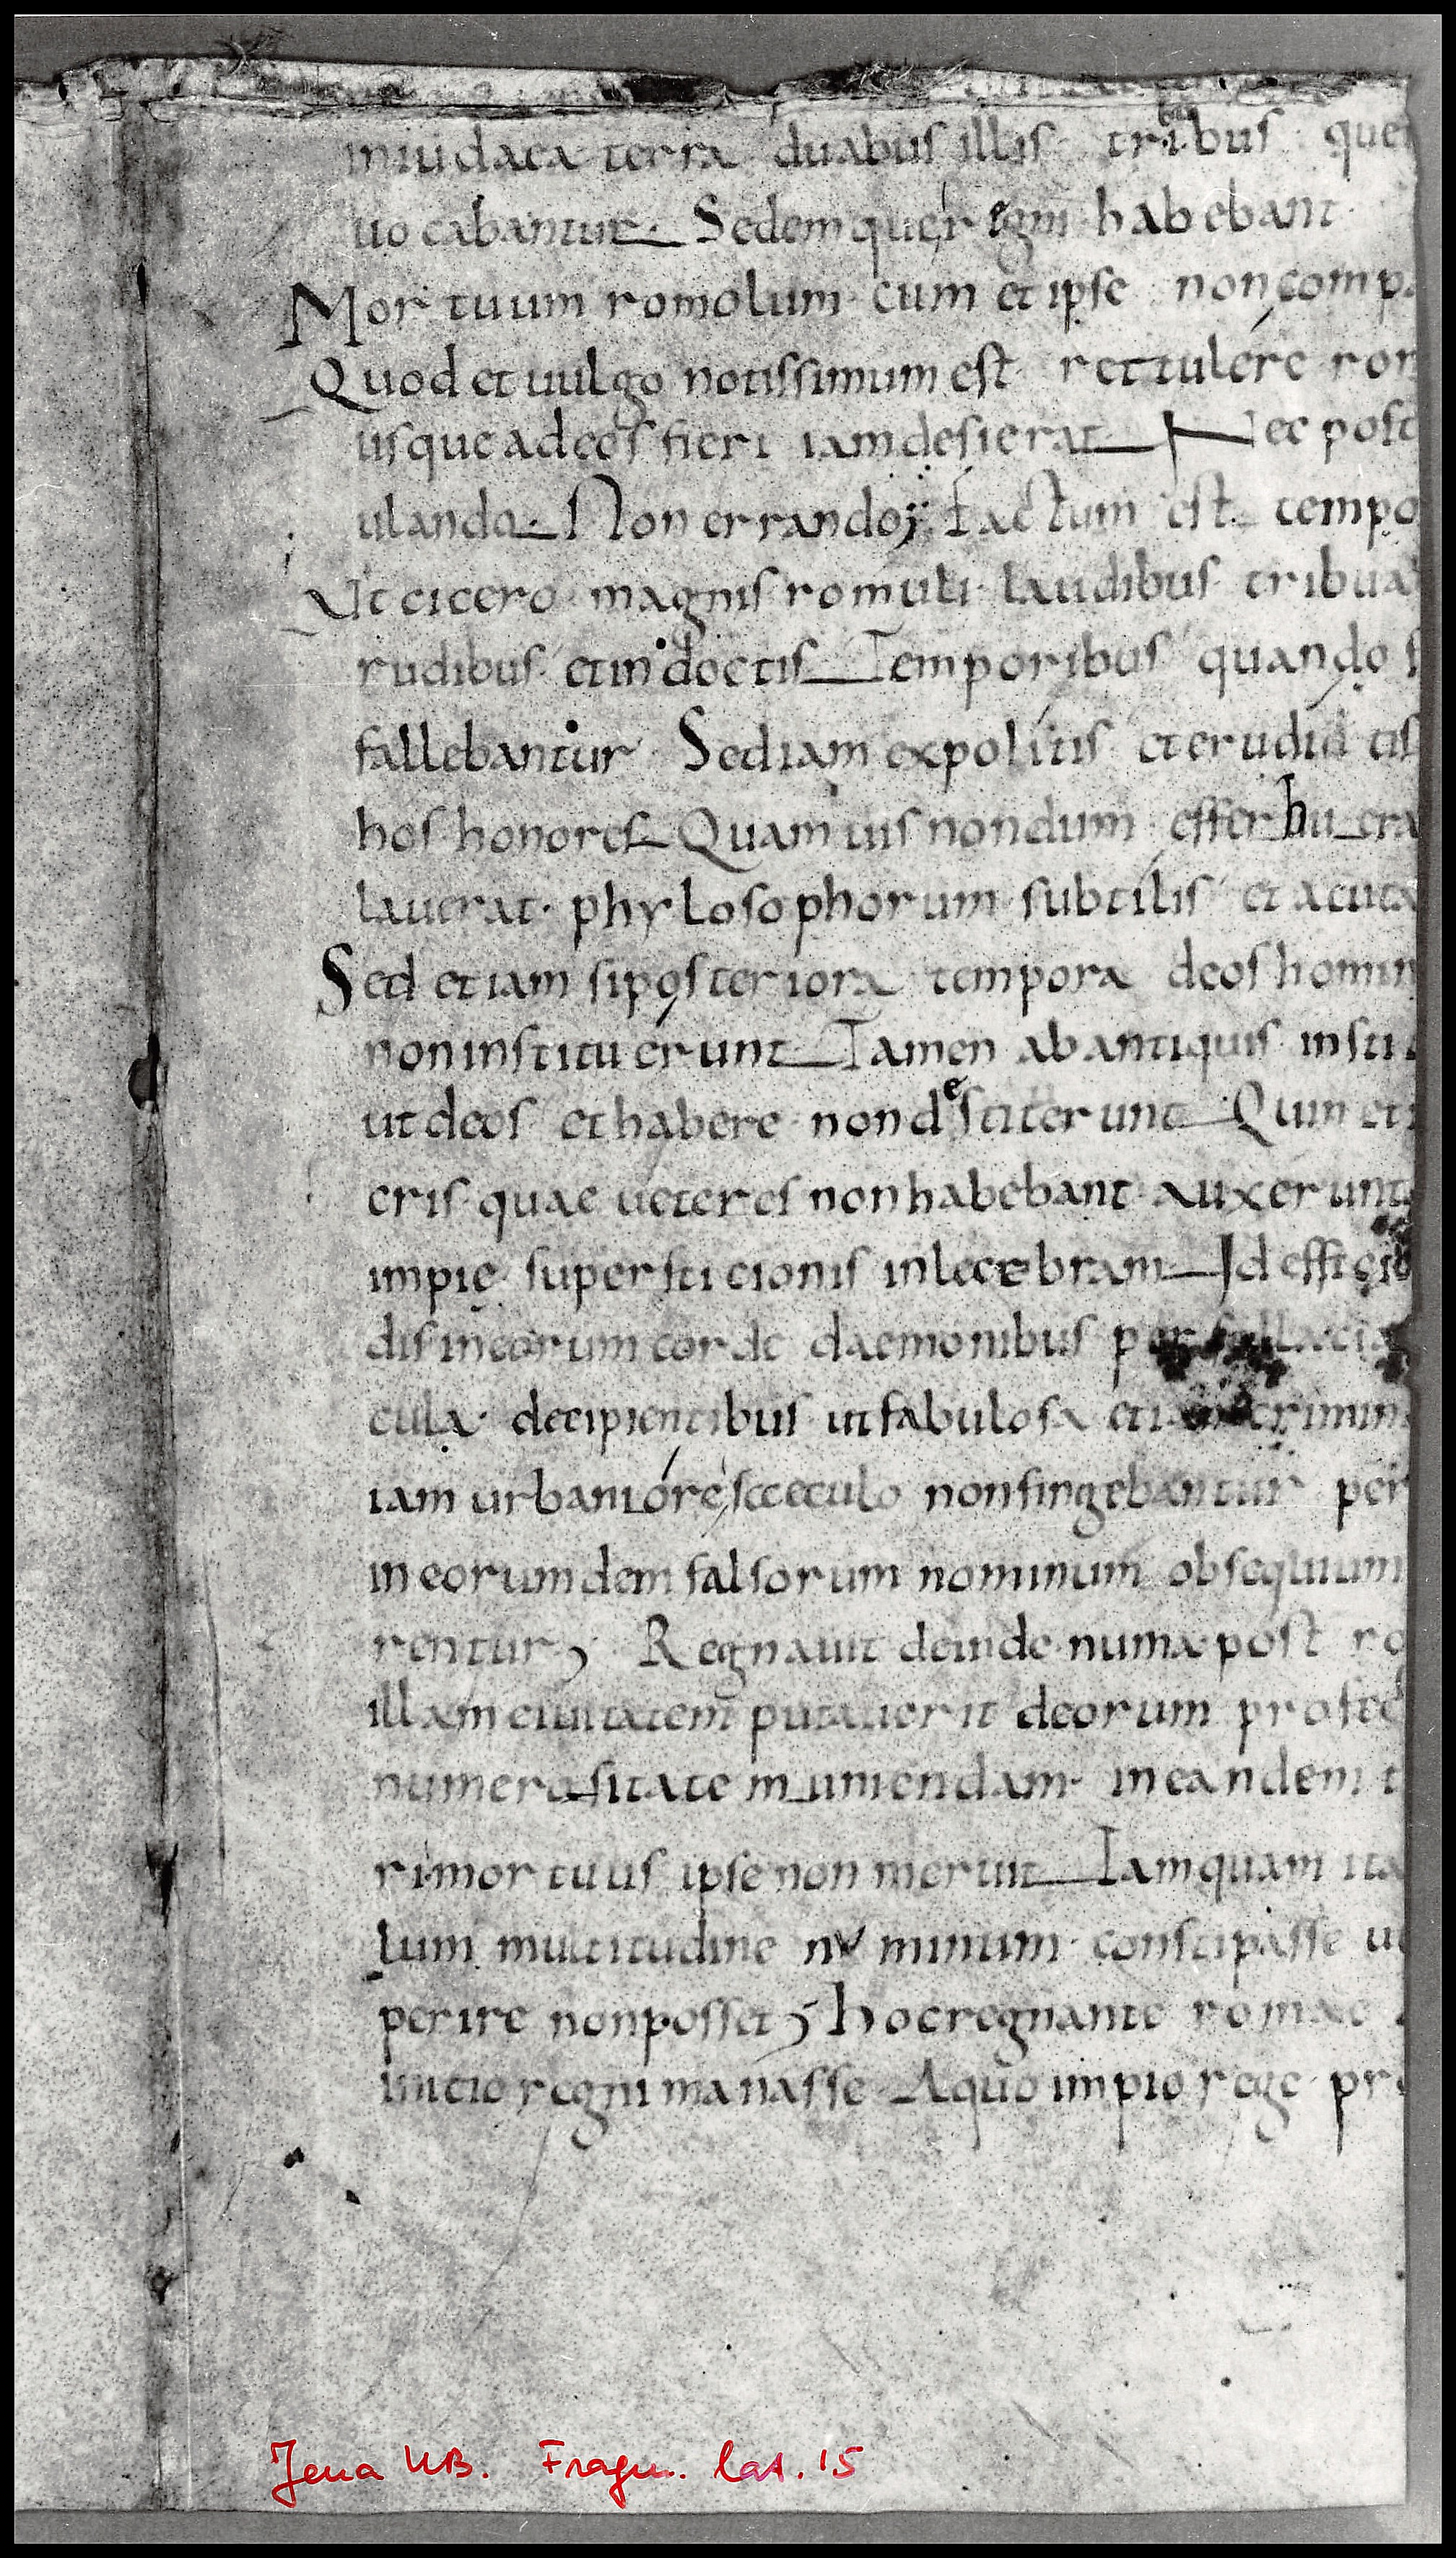 in iudaea terra duabus illis tribubus que
uocabantur. Sedemque regni habebant
Mortuum romolum cum et ipse non comp
Quod et uulgo notissimum est rettulére rom
usque adeo fieri iam desierat Nec post
ulando. Non errando; factum est tempo
Ut cicero magnis romuli laudibus tribua
rudibus et indoctis Temporibus quando f
fallebantur Sed iam expolitis et eruditis
hos honores Quamuis nondum efferbuera
lauerat phylosophorum subtilis et acuta
Sed etiam si posteriora tempora deos homin
non instituérunt Tamen ab antiquis insti
ut deos et habere non destiterunt Quin et
cris quae ueteres non habebant auxerunt
impię supersticionis inlecebram Id efficib
dis in eorum corde daemonibus per fallacia
cula decipientibus ut fabulosa etiam crimin
iam urbanióre sęculo non fingebantur per
in eorumdem falsorum nominum obsequium
rentur; Regnauit deinde numa post ro
illam ciuitatem putauerit deorum profec
numerositate muniendam in eandem t
ri mortuus ipse non meruit Tamquam ita
lum multitudine numinum constipasse u
perire non posset; hoc regnante romae
inicio regni manasse A quo impio rege pro
Jena UB. Fragm. lat. 15